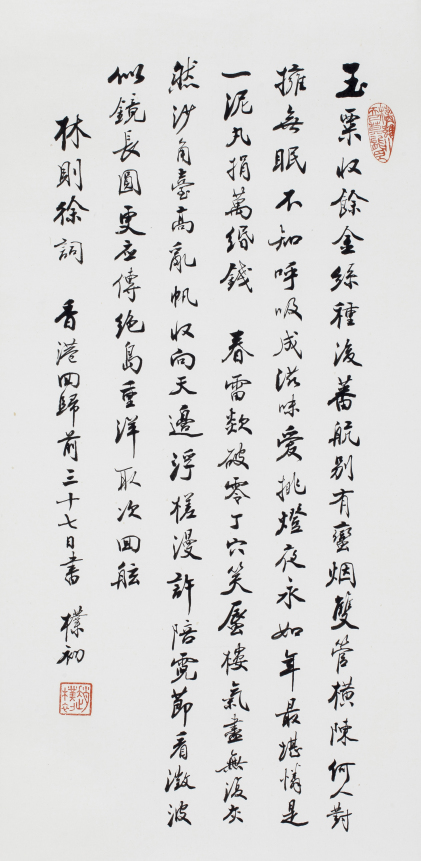 玉粟收餘金絲種後蕃航別有蠻烟雙管橫陳何人對
擁無眠不知呼吸成滋味愛挑燈夜永如年最堪憐是
一泥丸捐萬緡錢 春雷欻破零丁穴笑蜃樓氣盡無復灰
然沙角臺高亂帆收向天邊浮槎漫許陪霓節看澂波
似鏡長圓更应傳絶島重洋取次回舷
林則徐詞 香港回歸前三十七日書 樸初
趙樸初